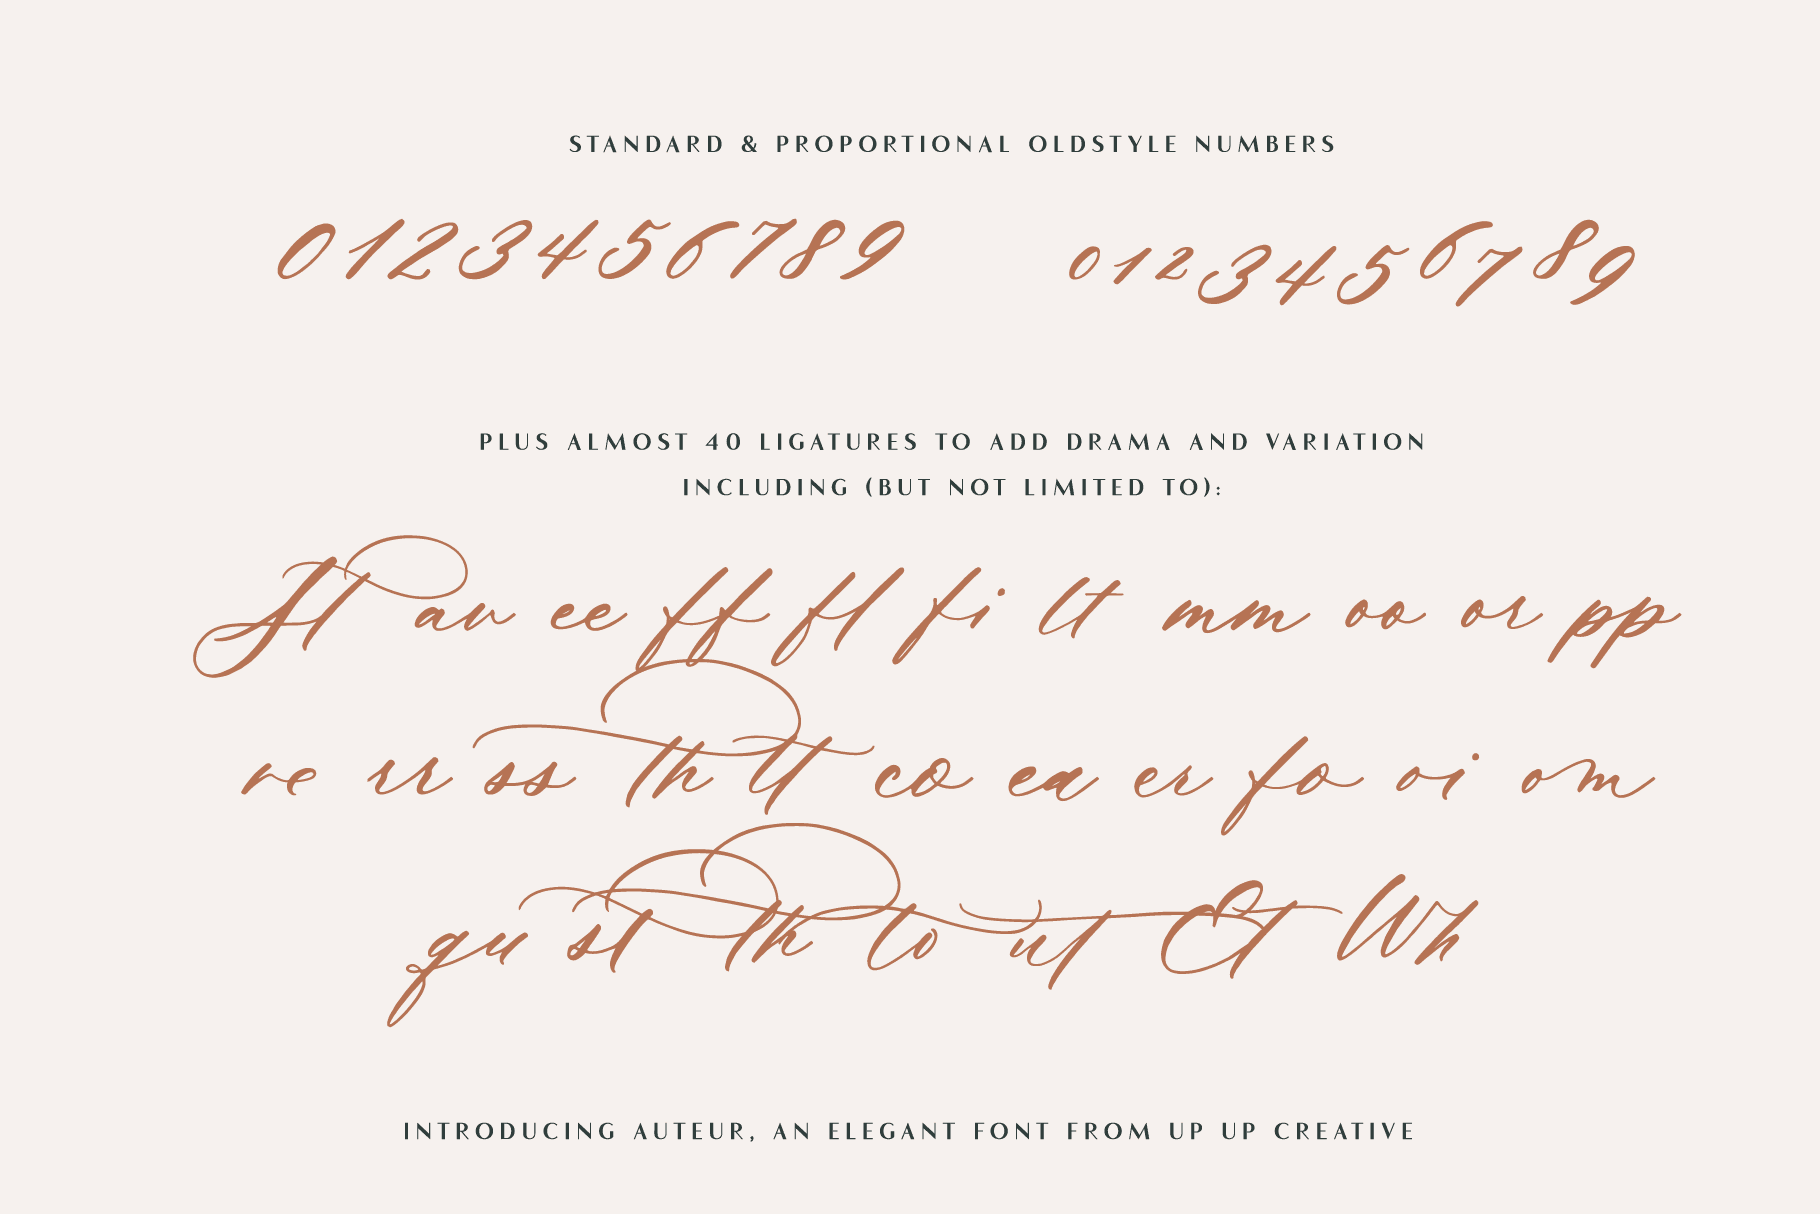 STANDARD & PROPORTIONAL OLDSTYLE NUMBERS
0123456789 0123456789
PLUS ALMOST 40 LIGATURES TO ADD DRAMA AND VARIATION
INCLUDING (BUT NOT LIMITED TO):
St av ee ff fl fi lt mm oo or pp
re rr ss th tt co ea er fo oi om
qu st th to ut Et Wh
INTRODUCING AUTEUR, AN ELEGANT FONT FROM UP UP CREATIVE